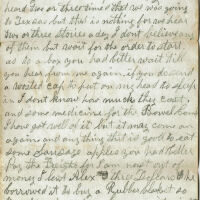 heard two or three times that we was going
to Texas but that is nothing for we hear
two or three stories a day I dont believe any
of them but wait for the order to start
as to a box you had better wait till
you hear from me again if you do send
a worsted cap to put on my head to sleep
in I dont know how much they cost
and some medicine for the Bowel Com
I have got well of it but it may come on
again and any thing that is good to eat
some Sausage apples you had better
for the Butter I am most out of
money I lent Alex three Dollars he
borrowed it to buy a Rubber blanket so